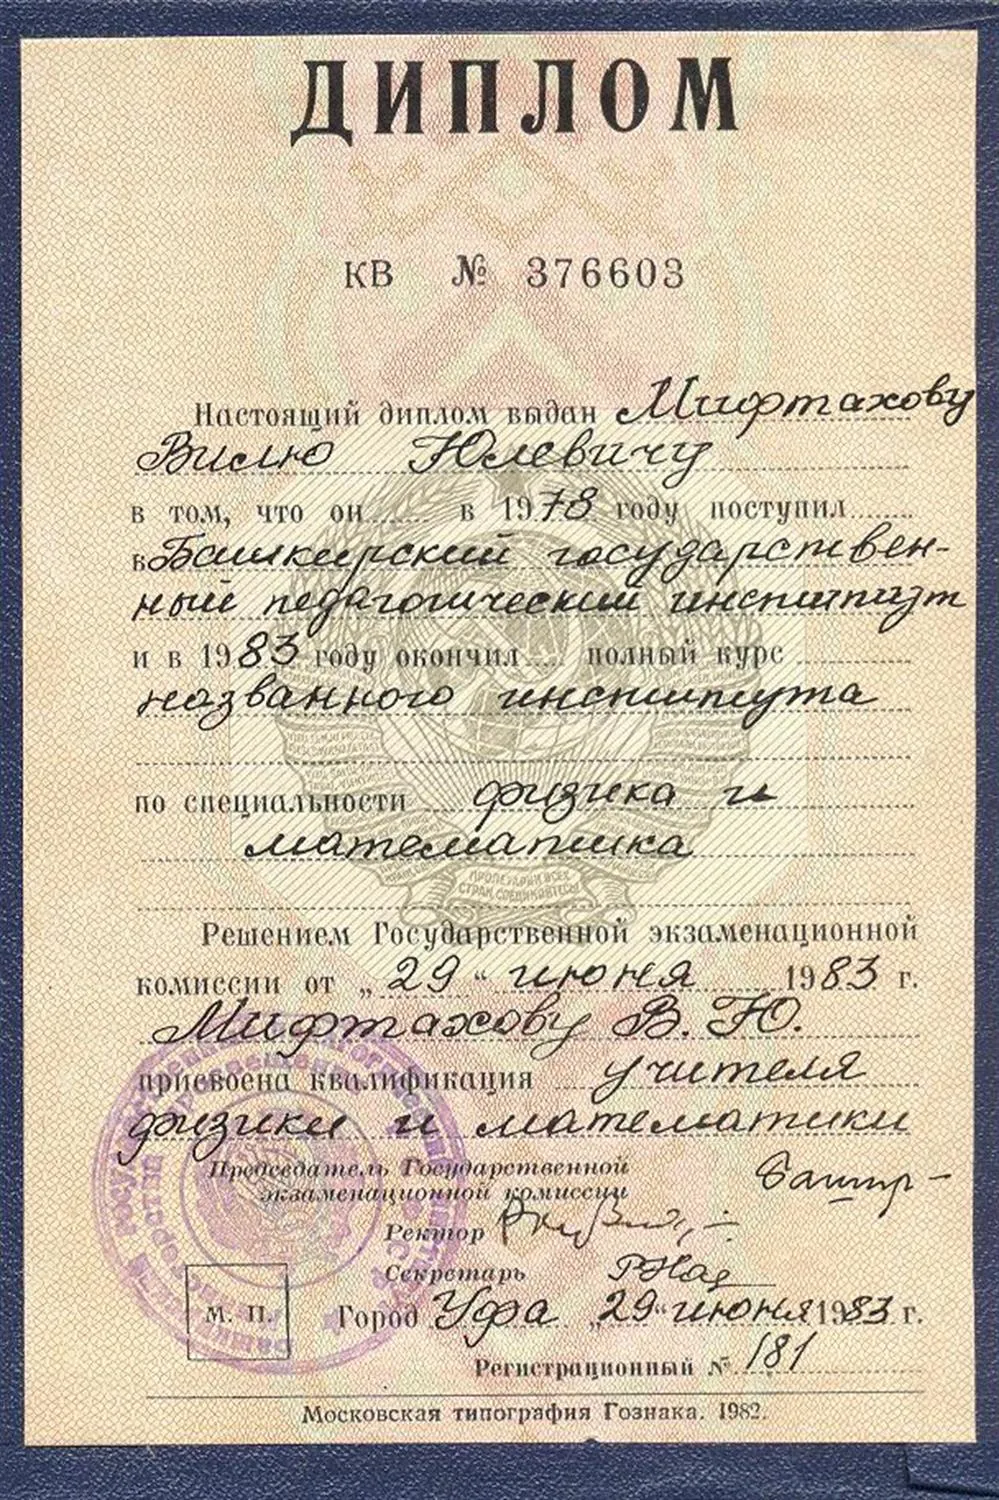 ДИПЛОМ
КВ № 376603
Настоящий диплом выдан Мифтахову
Вилю Юлевичу
в том, что он в 1978 году поступил
в Башкирский государствен-
ный педагогический институт
и в 1983 году окончил полный курс
названного института
по специальности физика и
математика
ПРОЛЕТАРИИ ВСЕХ
СТРАН, СОЕДИНЯЙТЕСЬ!
Решением Государственной экзаменационной
комиссии от „29“ июня 1983 г.
Мифтахову В. Ю.
присвоена квалификация учителя
физики и математики
Председатель Государственной
экзаменационной комиссии
Ректор
Секретарь
М. П. Город Уфа „29“ июня 1983 г.
Регистрационный № 181
Московская типография Гознака. 1982.